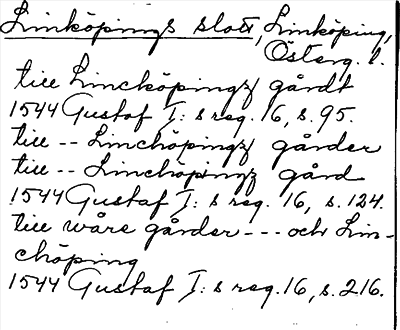 Linköpings slott, Linköping,
Österg. l.
till Lincköpingz gårdt
1544 Gustaf I: s reg. 16, s. 95.
till -- Linchöpingz gårder
till -- Linchöpingz gård
1544 Gustaf I: s reg. 16, s. 124.
till wåre gårder --- och Lin-
chöping
1544 Gustaf I: s reg. 16, s. 216.